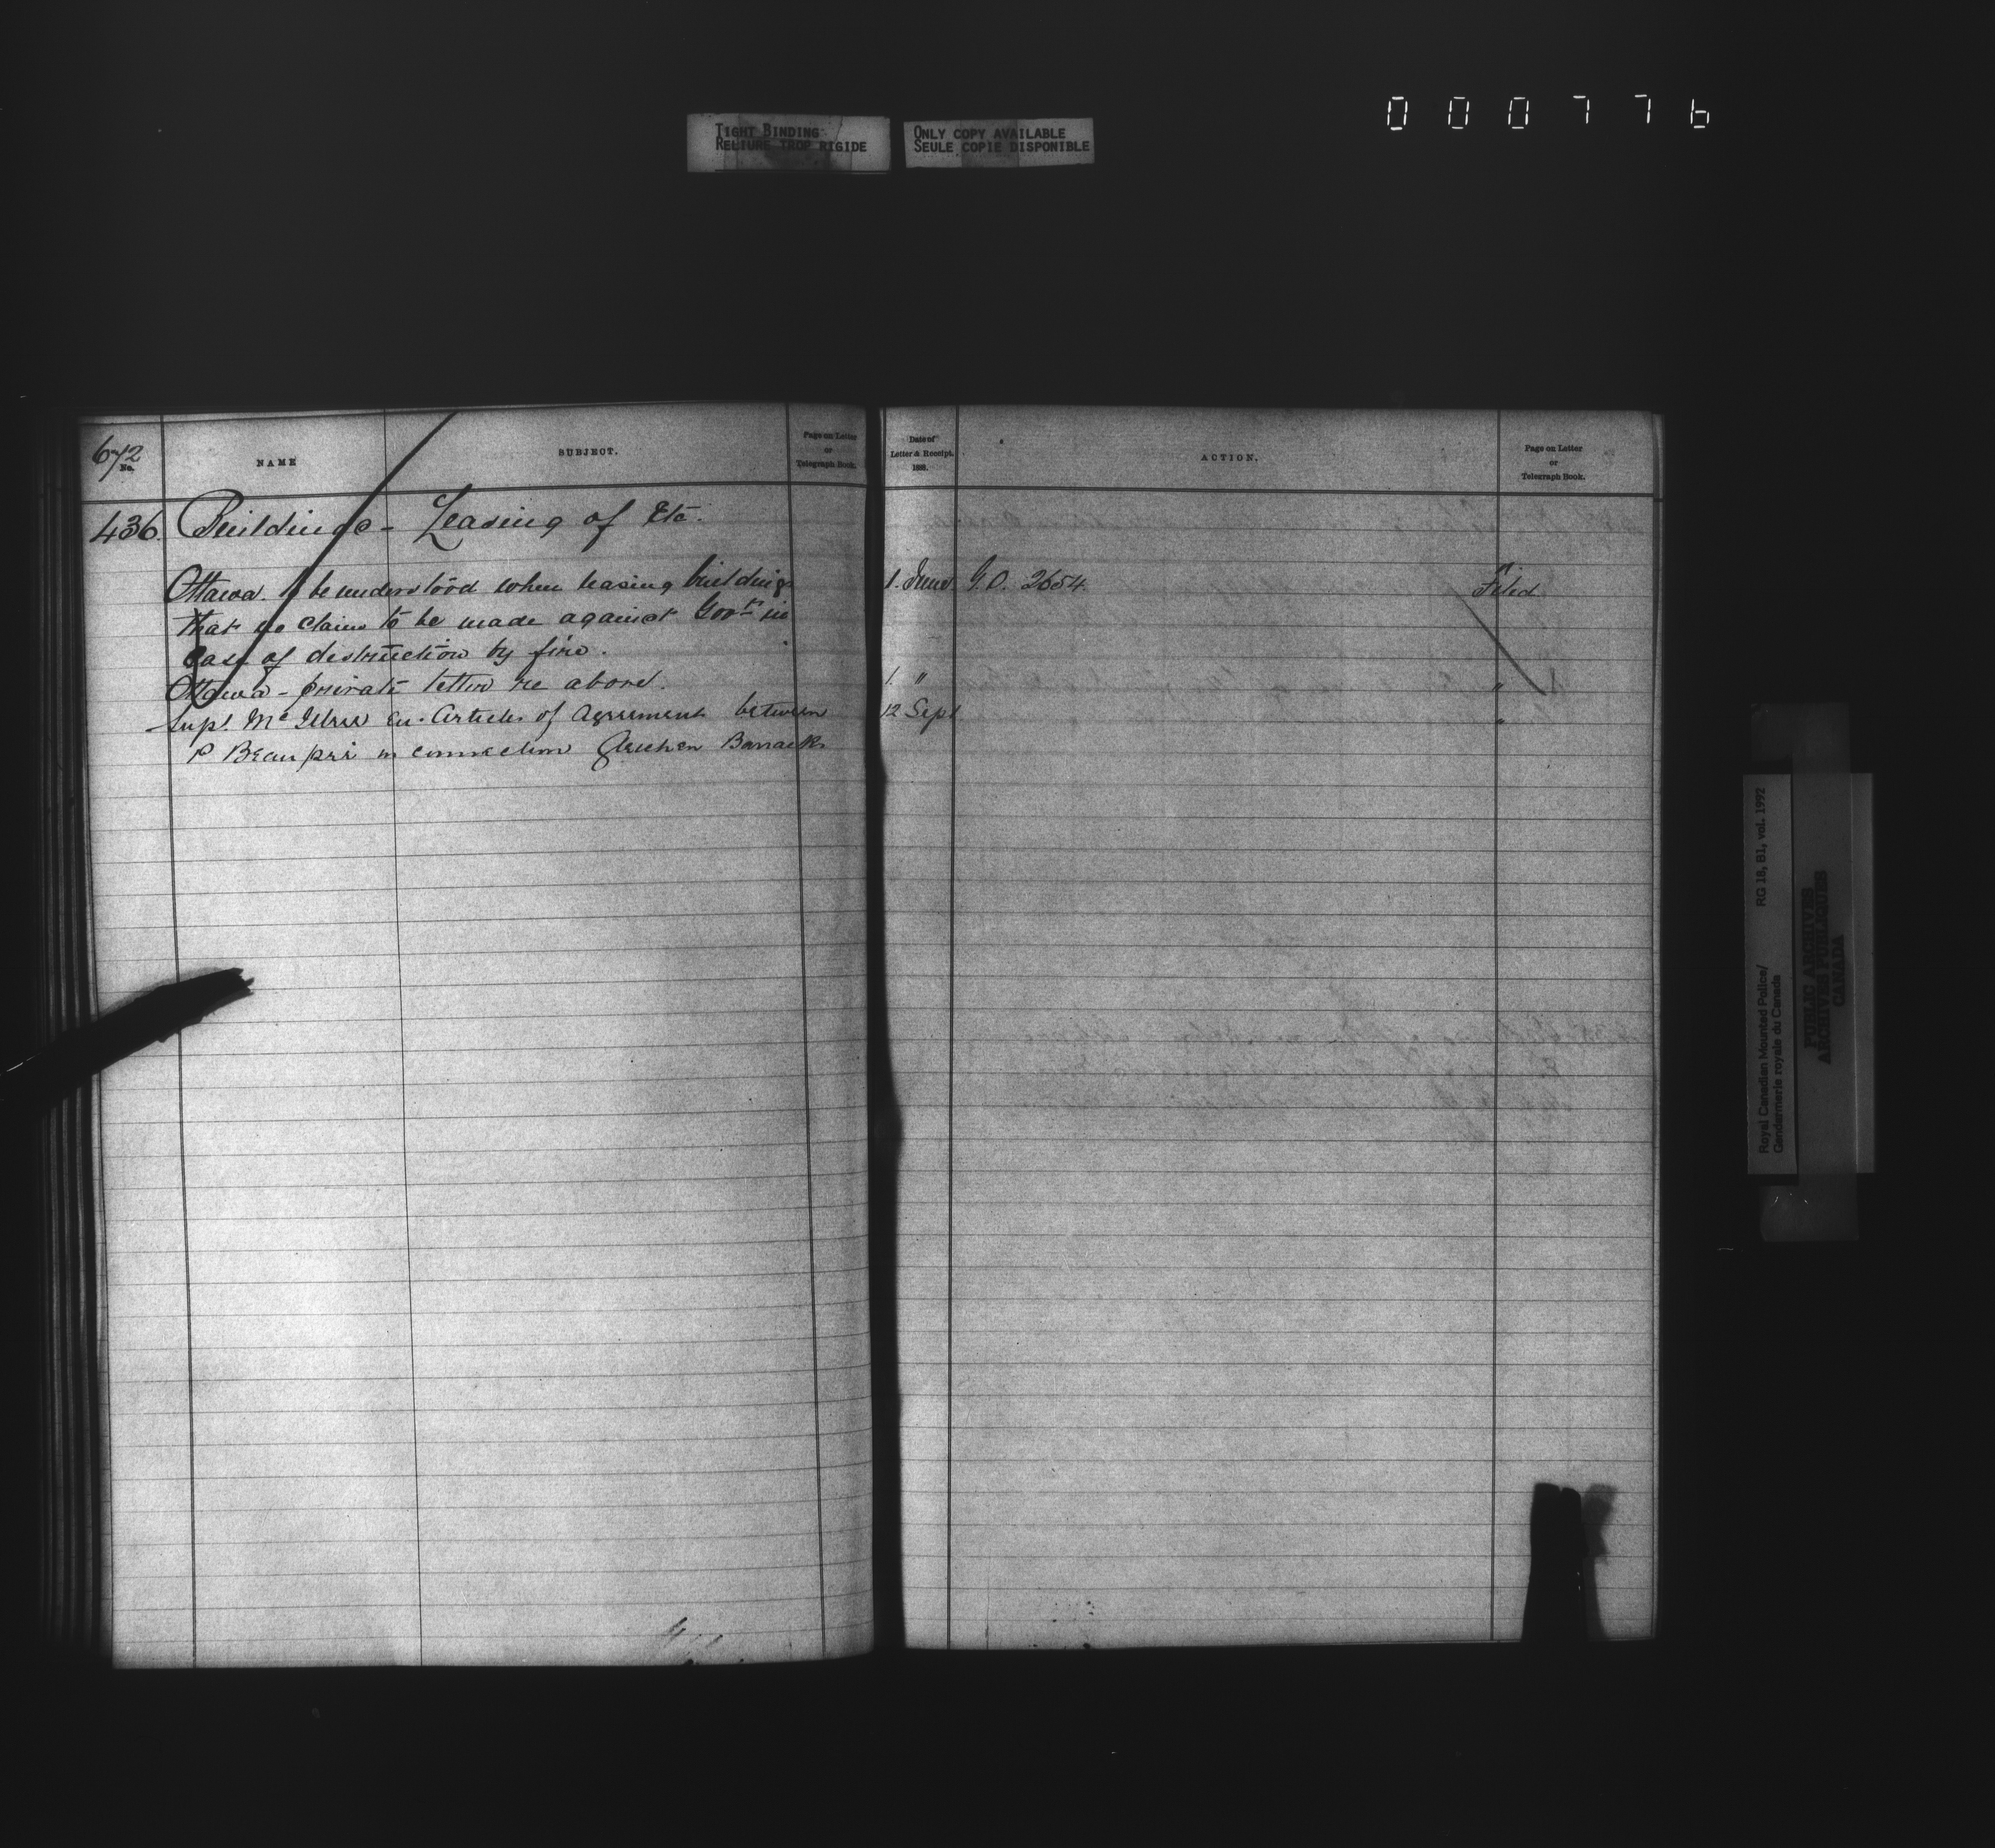 000776
TIGHT BINDING
RELIURE TROP RIGIDE
ONLY COPY AVAILABLE
SEULE COPIE DISPONIBLE
672
No.
NAME
SUBJECT.
Page on Letter
or
Telegraph Book.
Date of
Letter & Receipt.
188 .
ACTION.
Page on Letter
or
Telegraph Book.
436. Buildings - Leasing of Etc.
Ottawa. To be understood when leasing buildings 1. June. G.O. 2654. Filed
that no claim to be made against Govt in
Case of destruction by fire.
Ottawa - private letter re above. 1. " "
Supt. Mc Illree En. Articles of Agreement between 12 Sept "
P Beaupré in connection Gleichen Barracks
Royal Canadian Mounted Police/
Gendarmerie royale du Canada
RG 18, B1, vol. 1992
PUBLIC ARCHIVES
ARCHIVES PUBLIQUES
CANADA